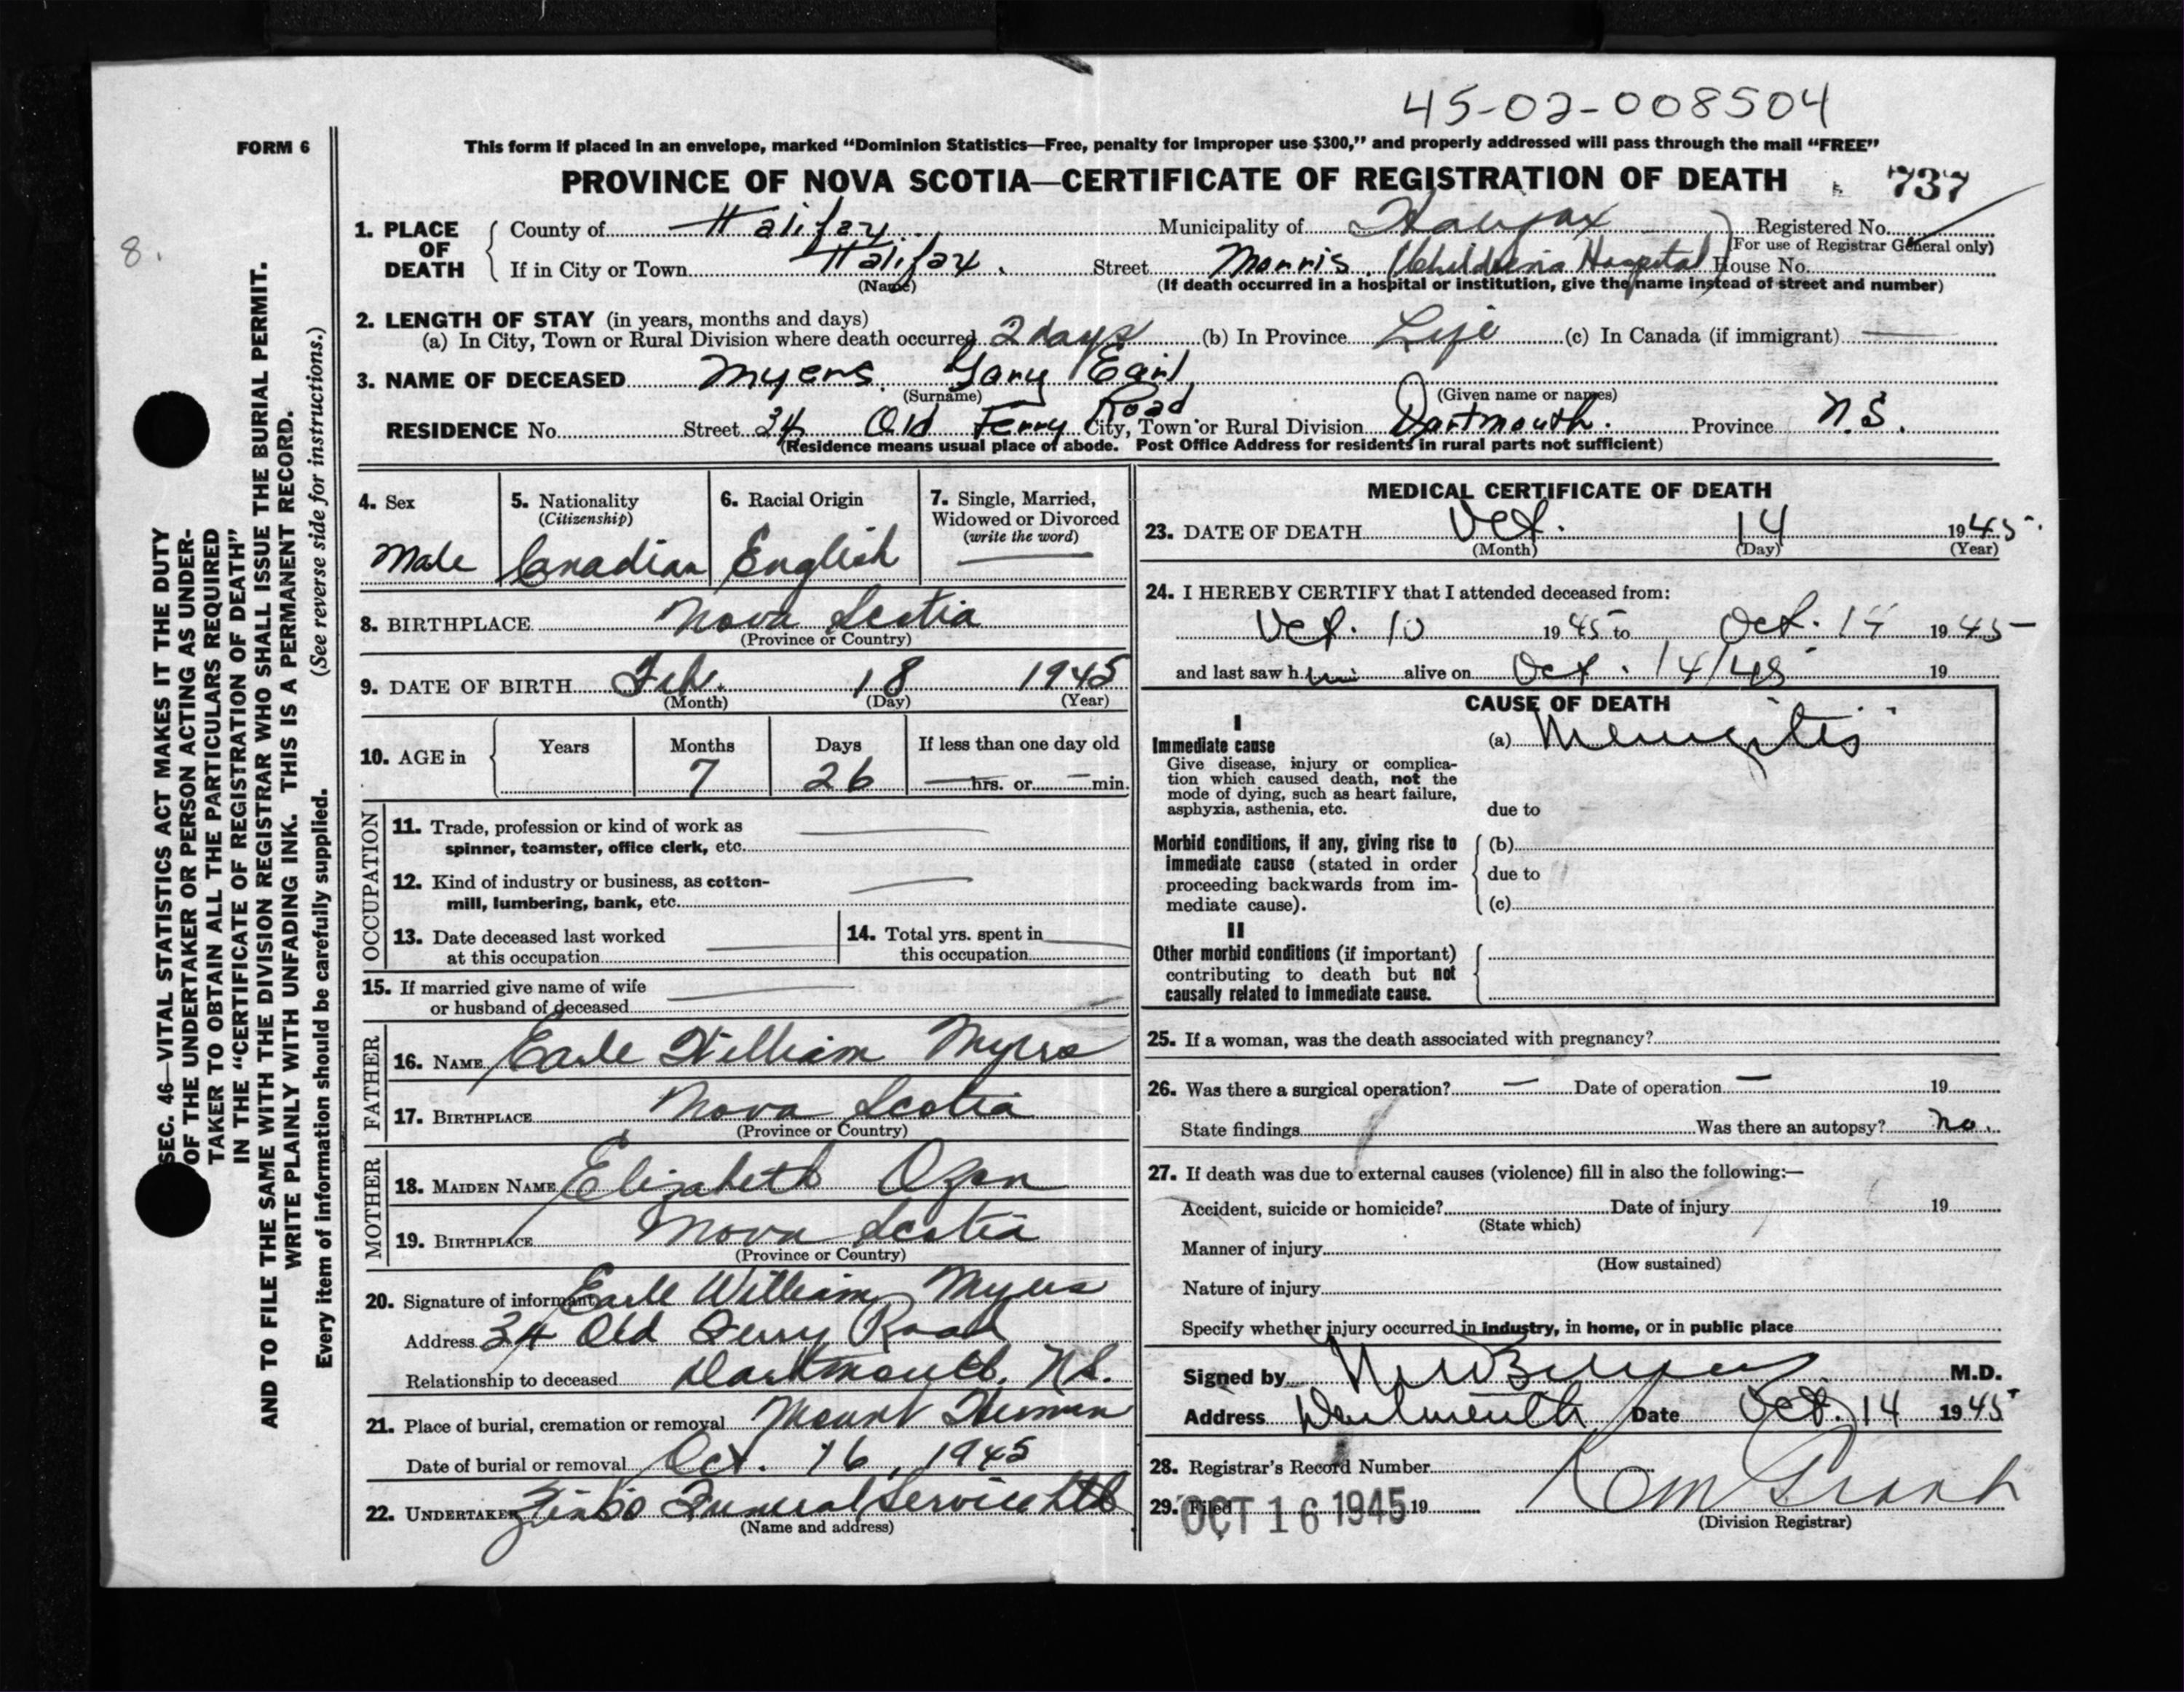 45-02-008504
FORM 6
This form if placed in an envelope, marked “Dominion Statistics—Free, penalty for improper use $300,” and properly addressed will pass through the mail “FREE”
PROVINCE OF NOVA SCOTIA—CERTIFICATE OF REGISTRATION OF DEATH 737
8.
1. PLACE OF DEATH
County of Halifax Municipality of Halifax Registered No.
(For use of Registrar General only)
If in City or Town Halifax. Street Morris. (Children's Hospital) House No.
(Name) (If death occurred in a hospital or institution, give the name instead of street and number)
2. LENGTH OF STAY (in years, months and days)
(a) In City, Town or Rural Division where death occurred 2 days (b) In Province Life (c) In Canada (if immigrant) —
3. NAME OF DECEASED Myers. Gary Earl
(Surname) (Given name or names)
RESIDENCE No. Street 34 Old Ferry Road City, Town or Rural Division Dartmouth. Province N.S.
(Residence means usual place of abode. Post Office Address for residents in rural parts not sufficient)
4. Sex Male
5. Nationality (Citizenship) Canadian
6. Racial Origin English
7. Single, Married, Widowed or Divorced (write the word) —
8. BIRTHPLACE Nova Scotia
(Province or Country)
9. DATE OF BIRTH Feb. 18 1945
(Month) (Day) (Year)
10. AGE in Years Months Days If less than one day old
7 26 — hrs. or — min.
OCCUPATION
11. Trade, profession or kind of work as
spinner, teamster, office clerk, etc.
12. Kind of industry or business, as cotton-
mill, lumbering, bank, etc.
13. Date deceased last worked
at this occupation
14. Total yrs. spent in
this occupation
15. If married give name of wife
or husband of deceased
FATHER
16. NAME Earle William Myers
17. BIRTHPLACE Nova Scotia
(Province or Country)
MOTHER
18. MAIDEN NAME Elizabeth
19. BIRTHPLACE Nova Scotia
(Province or Country)
20. Signature of informant Earle William Myers
Address 34 Old Ferry Road
Relationship to deceased Dartmouth, N.S.
21. Place of burial, cremation or removal Mount Hermon
Date of burial or removal Oct. 16, 1945
22. UNDERTAKER Funeral Service Ltd
(Name and address)
MEDICAL CERTIFICATE OF DEATH
23. DATE OF DEATH Oct. 14 1945
(Month) (Day) (Year)
24. I HEREBY CERTIFY that I attended deceased from:
Oct. 10 1945 to Oct. 14 1945
and last saw him alive on Oct. 14/45 19
CAUSE OF DEATH
I
Immediate cause (a) Meningitis
Give disease, injury or complica-
tion which caused death, not the
mode of dying, such as heart failure,
asphyxia, asthenia, etc. due to
Morbid conditions, if any, giving rise to (b)
immediate cause (stated in order
proceeding backwards from im- due to
mediate cause). (c)
II
Other morbid conditions (if important)
contributing to death but not
causally related to immediate cause.
25. If a woman, was the death associated with pregnancy?
26. Was there a surgical operation? — Date of operation — 19
State findings Was there an autopsy? No.
27. If death was due to external causes (violence) fill in also the following:—
Accident, suicide or homicide? Date of injury 19
(State which)
Manner of injury
(How sustained)
Nature of injury
Specify whether injury occurred in industry, in home, or in public place
Signed by M.D.
Address Dartmouth Date Oct. 14 1945
28. Registrar's Record Number
29. Filed OCT 16 1945 19 Grant
(Division Registrar)
SEC. 46—VITAL STATISTICS ACT MAKES IT THE DUTY
OF THE UNDERTAKER OR PERSON ACTING AS UNDER-
TAKER TO OBTAIN ALL THE PARTICULARS REQUIRED
IN THE “CERTIFICATE OF REGISTRATION OF DEATH”
AND TO FILE THE SAME WITH THE DIVISION REGISTRAR WHO SHALL ISSUE THE BURIAL PERMIT.
WRITE PLAINLY WITH UNFADING INK. THIS IS A PERMANENT RECORD.
Every item of information should be carefully supplied. (See reverse side for instructions.)